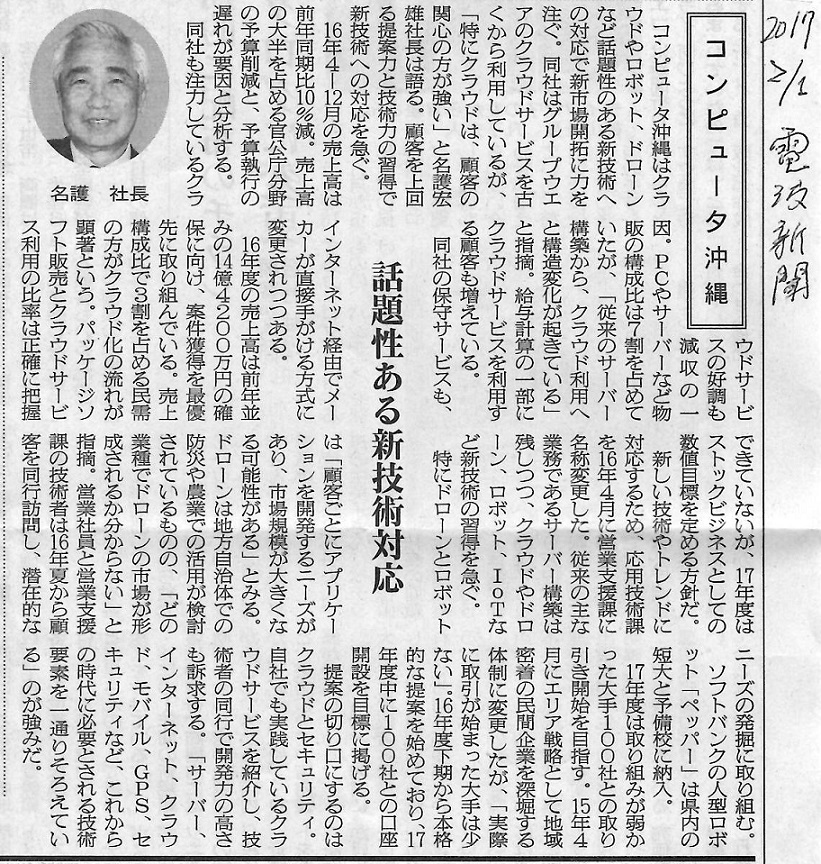 2017
2/1 電波新聞
コンピュータ沖縄
コンピュータ沖縄はクラ
ウドやロボット、ドローン
など話題性のある新技術へ
の対応で新市場開拓に力を
注ぐ。同社はグループウエ
アのクラウドサービスを古
くから利用しているが、
「特にクラウドは、顧客の
関心の方が強い」と名護宏
雄社長は語る。顧客を上回
る提案力と技術力の習得で
新技術への対応を急ぐ。
16年4―12月の売上高は
前年同期比10%減。売上高
の大半を占める官公庁分野
の予算削減と、予算執行の
遅れが要因と分析する。
同社も注力しているクラ
名護 社長
ウドサービ
スの好調も
減収の一
因。PCやサーバーなど物
販の構成比は7割を占めて
いたが、「従来のサーバー
構築から、クラウド利用へ
と構造変化が起きている」
と指摘。給与計算の一部に
クラウドサービスを利用す
る顧客も増えている。
同社の保守サービスも、
話題性ある新技術対応
インターネット経由でメー
カーが直接手がける方式に
変更されつつある。
16年度の売上高は前年並
みの14億4200万円の確
保に向け、案件獲得を最優
先に取り組んでいる。売上
構成比で3割を占める民需
の方がクラウド化の流れが
顕著という。パッケージソ
フト販売とクラウドサービ
ス利用の比率は正確に把握
できていないが、17年度は
ストックビジネスとしての
数値目標を定める方針だ。
新しい技術やトレンドに
対応するため、応用技術課
を16年4月に営業支援課に
名称変更した。従来の主な
業務であるサーバー構築は
残しつつ、クラウドやドロ
ーン、ロボット、IoTな
ど新技術の習得を急ぐ。
特にドローンとロボット
は「顧客ごとにアプリケー
ションを開発するニーズが
あり、市場規模が大きくな
る可能性がある」とみる。
ドローンは地方自治体での
防災や農業での活用が検討
されているものの、「どの
業種でドローンの市場が形
成されるか分からない」と
指摘。営業社員と営業支援
課の技術者は16年夏から顧
客を同行訪問し、潜在的な
ニーズの発掘に取り組む。
ソフトバンクの人型ロボ
ット「ペッパー」は県内の
短大と予備校に納入。
17年度は取り組みが弱か
った大手100社との取り
引き開始を目指す。15年4
月にエリア戦略として地域
密着の民間企業を深堀する
体制に変更したが、「実際
に取引が始まった大手は少
ない」。16年度下期から本格
的な提案を始めており、17
年度中に100社との口座
開設を目標に掲げる。
提案の切り口にするのは
クラウドとセキュリティ。
自社でも実践しているクラ
ウドサービスを紹介し、技
術者の同行で開発力の高さ
も訴求する。「サーバー、
インターネット、クラウ
ド、モバイル、GPS、セ
キュリティなど、これから
の時代に必要とされる技術
要素を一通りそろえてい
る」のが強みだ。